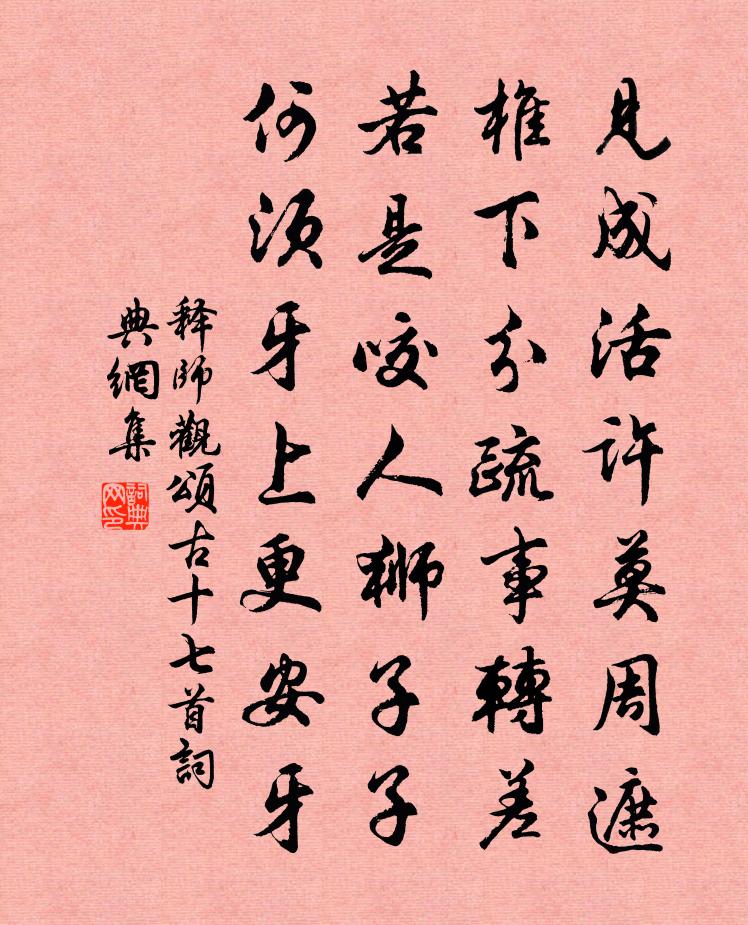 見成活許莫周遮
椎下分疏事轉差
若是咬人獅子子
何須牙上更安牙
释師觀頌古十七首詞
典網集
詞典
网印